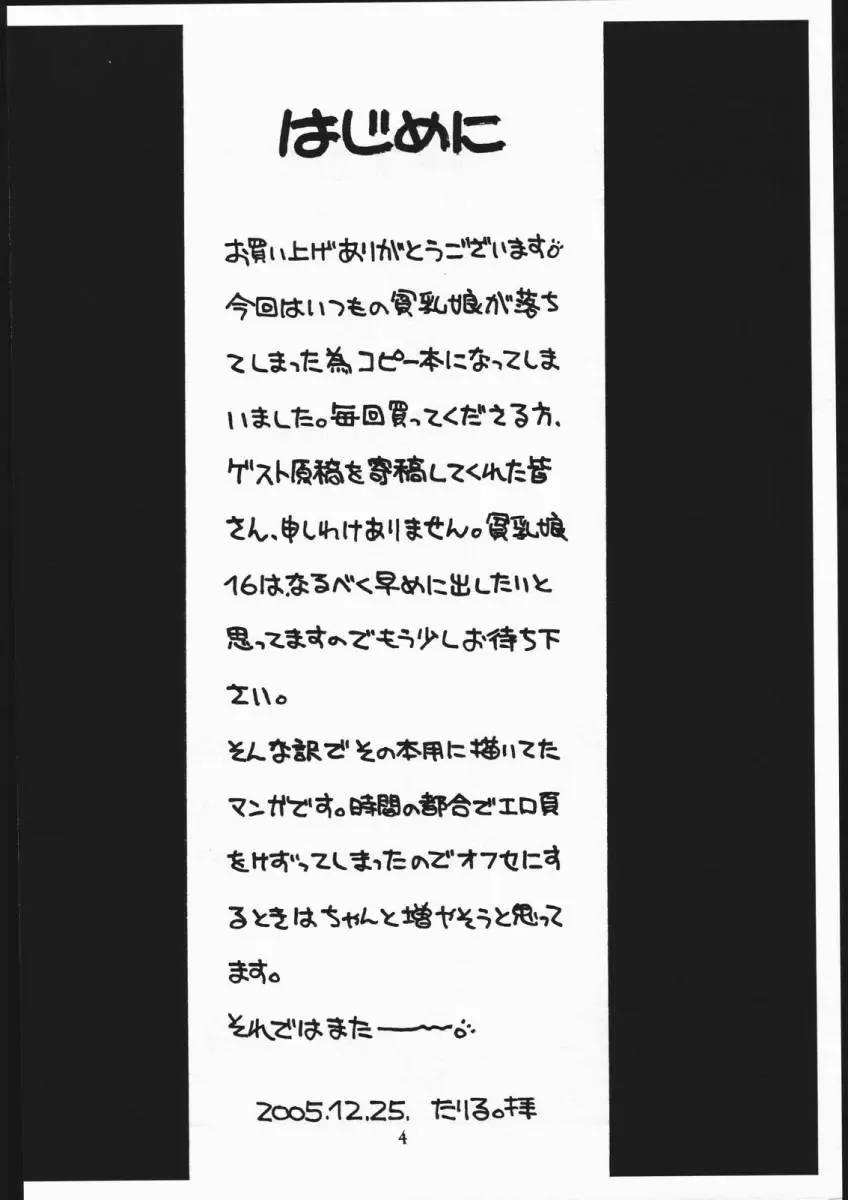 はじめに
お買い上げありがとうございます。
今回はいつもの貧乳娘が落ち
てしまった為コピー本になってしま
いました。毎回買ってくださる方、
ゲスト原稿を寄稿してくれた皆
さん、申しわけありません。貧乳娘
16は、なるべく早めに出したいと
思ってますのでもう少しお待ち下
さい。
そんな訳でその本用に描いてた
マンガです。時間の都合でエロ頁
をけずってしまったのでオフセにす
るときはちゃんと増やそうと思って
ます。
それではまたー〜。
2005.12.25. たりる。拝
4